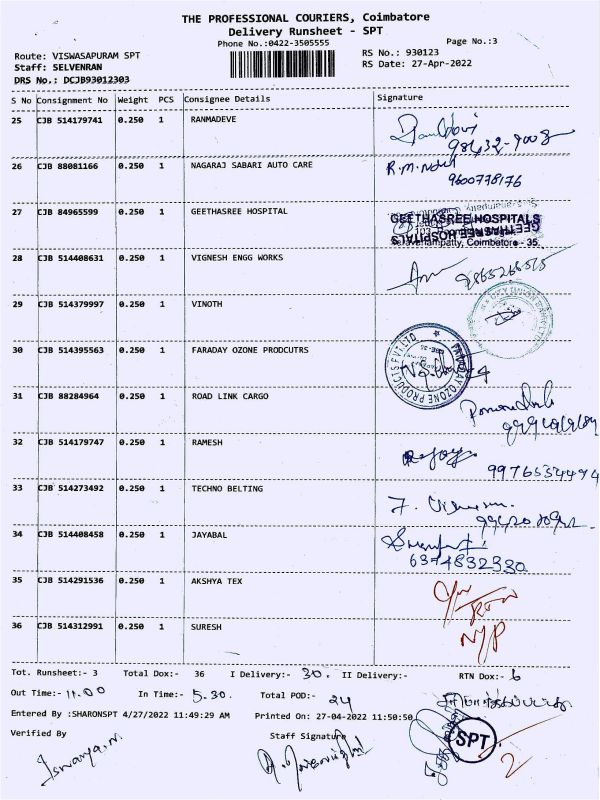 THE PROFESSIONAL COURIERS, Coimbatore
Delivery Runsheet - SPT
Phone No.:0422-3505555
Page No.:3
Route: VISWASAPURAM SPT
RS No.: 930123
Staff: SELVENRAN
RS Date: 27-Apr-2022
DRS No.: DCJB93012303
S No Consignment No Weight PCS Consignee Details Signature
25 CJB 514179741 0.250 1 RANMADEVE
26 CJB 88081166 0.250 1 NAGARAJ SABARI AUTO CARE R.M.
9600778176
27 CJB 84965599 0.250 1 GEETHASREE HOSPITAL
GEETHASREE HOSPITALS
Saravanampatty, Coimbatore - 35.
28 CJB 514408631 0.250 1 VIGNESH ENGG WORKS
29 CJB 514379997 0.250 1 VINOTH
30 CJB 514395563 0.250 1 FARADAY OZONE PRODCUTRS
FARADAY OZONE PRODUCTS PVT.LTD
31 CJB 88284964 0.250 1 ROAD LINK CARGO
32 CJB 514179747 0.250 1 RAMESH
9976554494
33 CJB 514273492 0.250 1 TECHNO BELTING
34 CJB 514408458 0.250 1 JAYABAL
6374832330
35 CJB 514291536 0.250 1 AKSHYA TEX
36 CJB 514312991 0.250 1 SURESH N/P
Tot. Runsheet:- 3 Total Dox:- 36 I Delivery:- 30. II Delivery:- RTN Dox:- 6
Out Time:- 11.00 In Time:- 5.30. Total POD:- 24
Entered By :SHARONSPT 4/27/2022 11:49:29 AM Printed On: 27-04-2022 11:50:50
Verified By Staff Signature
Iswarya.N.
SPT
2